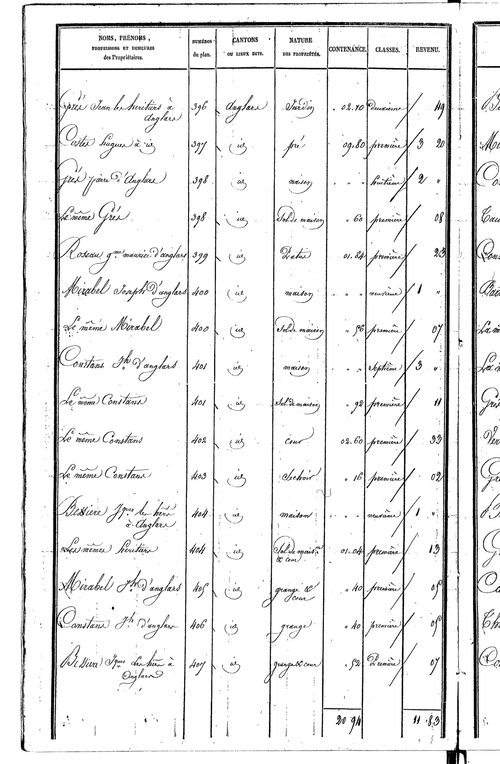 NOMS, PRÉNOMS, PROFESSIONS ET DEMEURES des Propriétaires. | NUMÉROS du plan. | CANTONS OU LIEUX DITS. | NATURE DES PROPRIÉTÉS. | CONTENANCE. | CLASSES. | REVENU.
Grés Jean les héritiers à anglars | 396 | anglars | Jardin | 02.10 | Deuxieme | 49
Costes hugues à id | 397 | id | pré | 09.80 | première | 3 20
Grés pierre d'Anglars | 398 | id | maison | " " | huitième | 2 "
Le même Grés | 398 | id | Sol de maison | " 60 | première | 08
Roseau maurice d'anglars | 399 | id | Patus | 01.84 | première | 23
Mirabel Joseph d'anglars | 400 | id | maison | " " | neuvième | 1 "
Le même Mirabel | 400 | id | Sol de maison | " 56 | première | 07
Constans Jh d'anglars | 401 | id | maison | " " | septième | 3 "
Le même Constans | 401 | id | Sol de maison | " 92 | première | 11
Le même Constans | 402 | id | cour | 02.60 | première | 33
Le même Constans | 403 | id | " 16 | première | 02
Bessiere Jques les hérs à Anglars | 404 | id | maison | " " | neuvième | 1 "
Les mêmes héritiers | 404 | id | Sol de maison & cour | 01.04 | première | 13
Mirabel Jh d'anglars | 405 | id | grange & cour | " 40 | première | 05
Constans Jh d'anglars | 406 | id | grange | " 40 | première | 05
Bessiere Jques les hérs à Anglars | 407 | id | grange & cour | " 52 | Première | 07
20 94 | 11 83